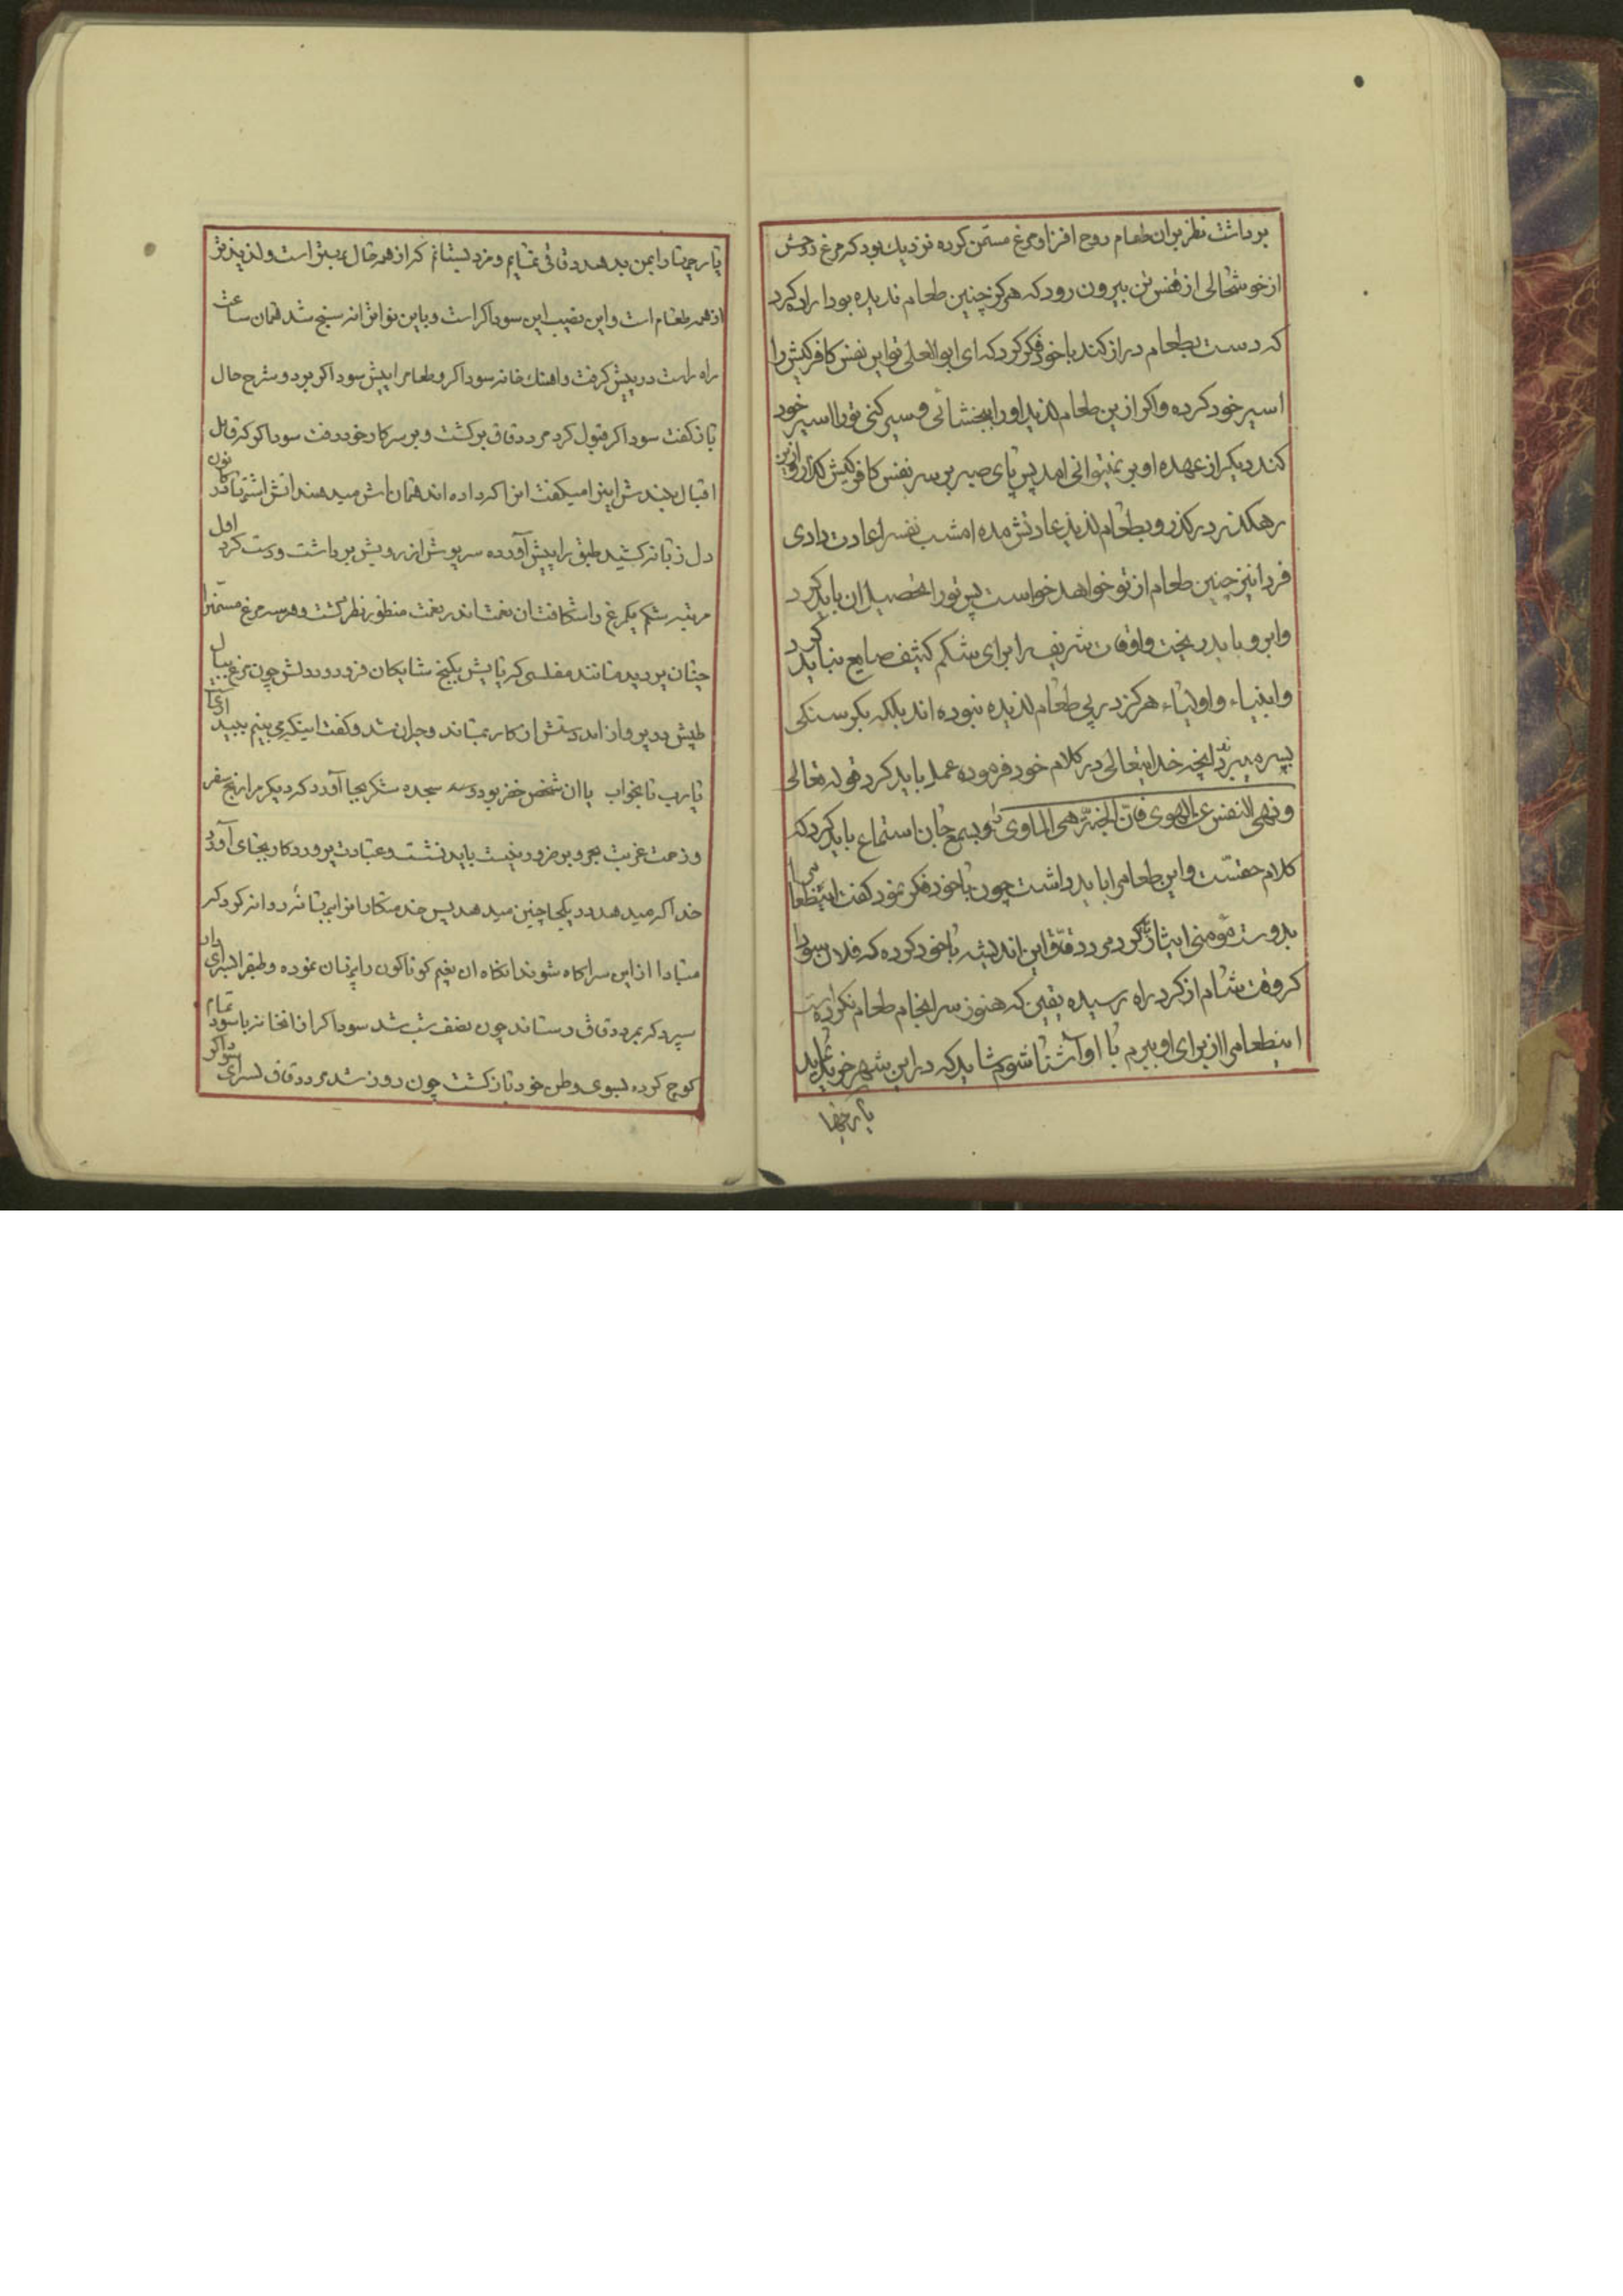 برداشت نظر بران طعام روح افزا و مرغ مسمن کرده نزدیك بود که مرغ روحش
از خوشحالی از قفس تن بیرون رود که هرکز چنین طعام ندیده بود اراده کرد
که دست بطعام دراز کند باخود فکر کرد که ای ابوالعلی تو این نفس کافرکیش را
اسیر خود کرده واکر ازین طعام لذیذ اورا ببخشائی و سیر کنی تورا اسیر خود
کند دیکر از عهده او بر نمیتوانی امد پس پای صبر بر سر نفس کافرکیش کذار و ازین
رهکذر درکذر و بطعام لذیذ عادتش مده امشب نفسرا عادت دادی
فردا نیز چنین طعام از تو خواهد خواست پس تورا تحصیل ان باید کرد
وابرو باید ریخت واوقات شریف را برای شکم کثیف ضایع نباید کرد
وانبیاء واولیاء هرکز در پی طعام لذیذه نبوده اند بلکه بکرسنکی
بسر میبردند انچه خدایتعالی در کلام خود فرموده عمل باید کرد قوله تعالی
ونهی النفس عن الهوی فان الجنة هی الماوی وبسمع جان استماع باید کرد که
کلام حقست واین طعامرا باید داشت چون باخود فکر نمود کفت اینطعامرا
بدوست مؤمنی ایثار کرد مرد دقاق این اندیشه باخود کرده که فلان سودا
کر وقت شام از کرد راه رسیده یقین که هنوز سرانجام طعام نکرده است
اینطعامرا از برای او ببرم با او آشنا شوم شاید که در این شهر خرید نماید
پارچها
پارچها را بمن بدهد دقاقی نمایم و مزد بستانم که از همه حال بهتر است ولذیذتر
از همه طعام است واین نصیب این سوداکر است وباین نوا ترانه سنج شد همان ساعت
راه راست در پیش کرفت واهنك خانه سوداکر و طعامرا پیش سوداکر برد و شرح حال
باز کفت سوداکر قبول کرد مرد دقاق برکشت وبر سر کار خود رفت سوداکر که قابل
دل زبانه کشید طبق را پیش آورده سرپوش از رویش برداشت ودست کرد اول
مرتبه شکم یکمرغ را شکافت ان نعمت اندر نعمت منظور نظر کشت و هر سه مرغ مسمنرا
چنان بر دید مانند مفلسی که پایش بکنج شایکان فرو رود دلش چون مرغ بسمل
طپش در پرواز امد دستش از کار بماند وحیران شد وکفت اینکه می بینم ببیداری
یارب یا بخواب یا ان شخص خضر بود سجده شکر بجا آورد که دیکر مرا رنج سفر
وزحمت غربت بحر و بر ضرور نیست باید نشست وعبادت پروردکار بجای آورد
خدا اکر میدهد در یکجا چنین میدهد پس خدمتکارانرا بهانه روانه کرد که
مبادا از این سر اکاه شوند انکاه ان نعیم کوناکون را پنهان نموده و طبقرا
سپرد که بمرد دقاق رساند چون نصف شب شد سوداکر از انخانه
کوچ کرده بسوی وطن خود باز کشت چون روز شد مرد دقاق بسرای